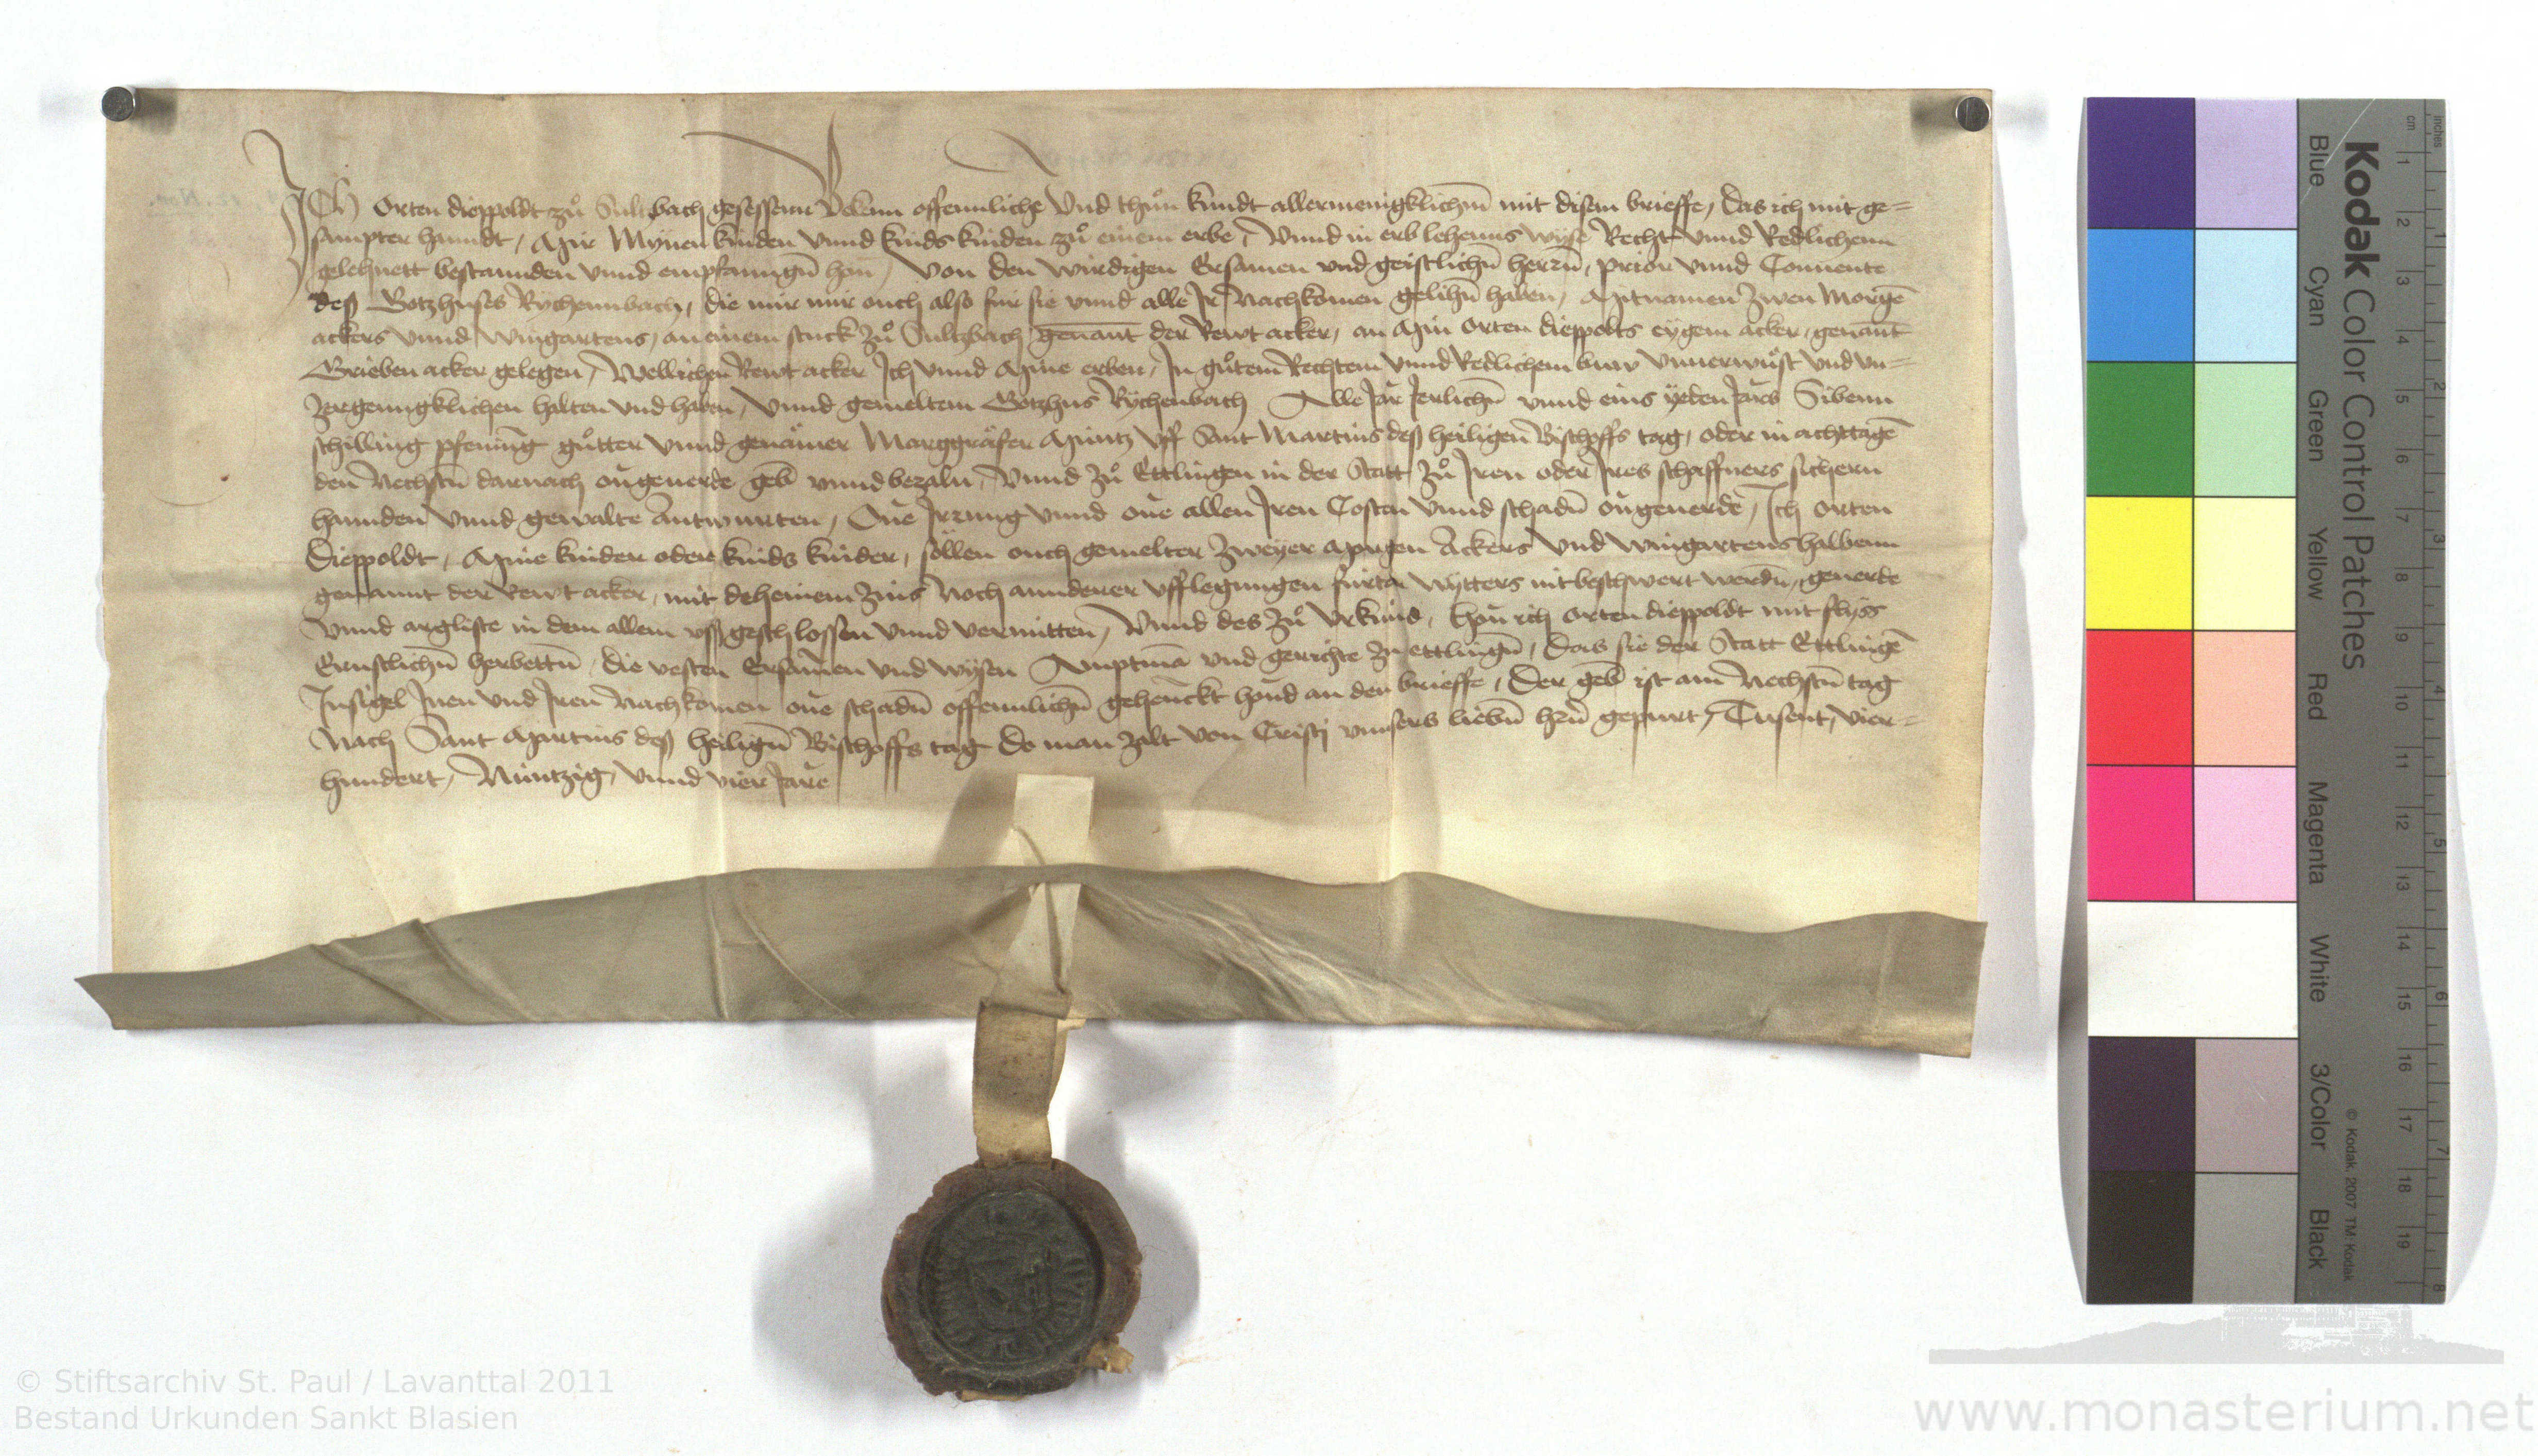 Ich Orten dieppoldt zů Sultzbach gesessenn Bekenn offennliche Vnd thůn kundt allermenigklichenn̄ mit disem brieffe, Das ich mit ge=
sampter hanndt, Mir Mynen kinden Vnnd kinds kinden zů einem erbe, Vnnd in erb lehenns wyse Recht vnnd Redlichenn
gelehnett bestannden vnnd empfanngn̄ han, Von den wurdigen Ersamen vnd geistlichn̄ herrn̄, prior vnnd Conuente
deß Gotzhuses Rychennbach, die mir ouch also fur sie vnnd alle Ir Nachkomen gelihn̄ haben, Mitnamen Zwen Morgē
ackers vnnd Wingartens, an einem stuck zů Sultzbach genānt der Rewt acker, an Min Orten dieppolts eygem acker, genānt
Grieben acker gelegen, Wellichen Rewt acker Ich Vnnd Mine erben, In gůtem Rechtem vnnd Redlichem buw Vnuerwůst vnd vn=
zergenngklichen halten vnd haben, Vnnd gemeltem Gotzhus Rychenbach Alle Jar Jerlichn̄ vnnd eins yeden Jars Sibenn
schilling pfening gůtter Vnnd genämer Marggräfer Müntz Vff Sant Martins deß heiligen Bischoffs tag, oder in achttagē
den Nechstn̄ darnach ongeuerde gebn̄ vnnd bezaln, Vnnd zů Ettlingen in der Statt zů Iren oder Ires schaffners sichern
hannden Vnnd gewalte Antwurten, One Irrung Vnnd one allen Iren Costen Vnnd schadn̄ ongeuerde, Ich Orten
Dieppoldt, Mine kinder oder kinds kinder, söllen ouch gemelter Zweyer Morgen Ackers Vnd Wingartens halbenn
genannt der Rewt acker, mit deheinem Zins Noch annderer Vfflegungen furter wytters nit beschwert werdn̄, geuerde
Vnnd argliste in dem allem vßgeschlossen Vnnd vermitten, Vnnd des zů Vrkund, hon ich Orten dieppoldt mit flyss
Ernstlichn̄ herbettn̄, die vesten Ersamen vnd wysen Amptmā vnd gerichte zu ettlingn̄, Das sie der Statt Ettlingē
Insigel Inen vnd Iren Nachkomen one schadn̄ offennlichn̄ gehenckt hond an den brieffe, Der gebn̄ ist am Nechstn̄ tag
Nach Sant Martins deß heilign̄ Bischoffs tag Do man zalt von Cristj vnnsers liebn̄ hrn̄ gepurt, Tusent, vier=
hundert, Nüntzig, Vnnd vier Jare
Kodak Color Control Patches
Blue Cyan Green Yellow Red Magenta White 3/Color Black
© Kodak, 2007 TM: Kodak
cm 1 2 3 4 5 6 7 8 9 10 11 12 13 14 15 16 17 18 19
inches 1 2 3 4 5 6 7 8
© Stiftsarchiv St. Paul / Lavanttal 2011
Bestand Urkunden Sankt Blasien
www.monasterium.net